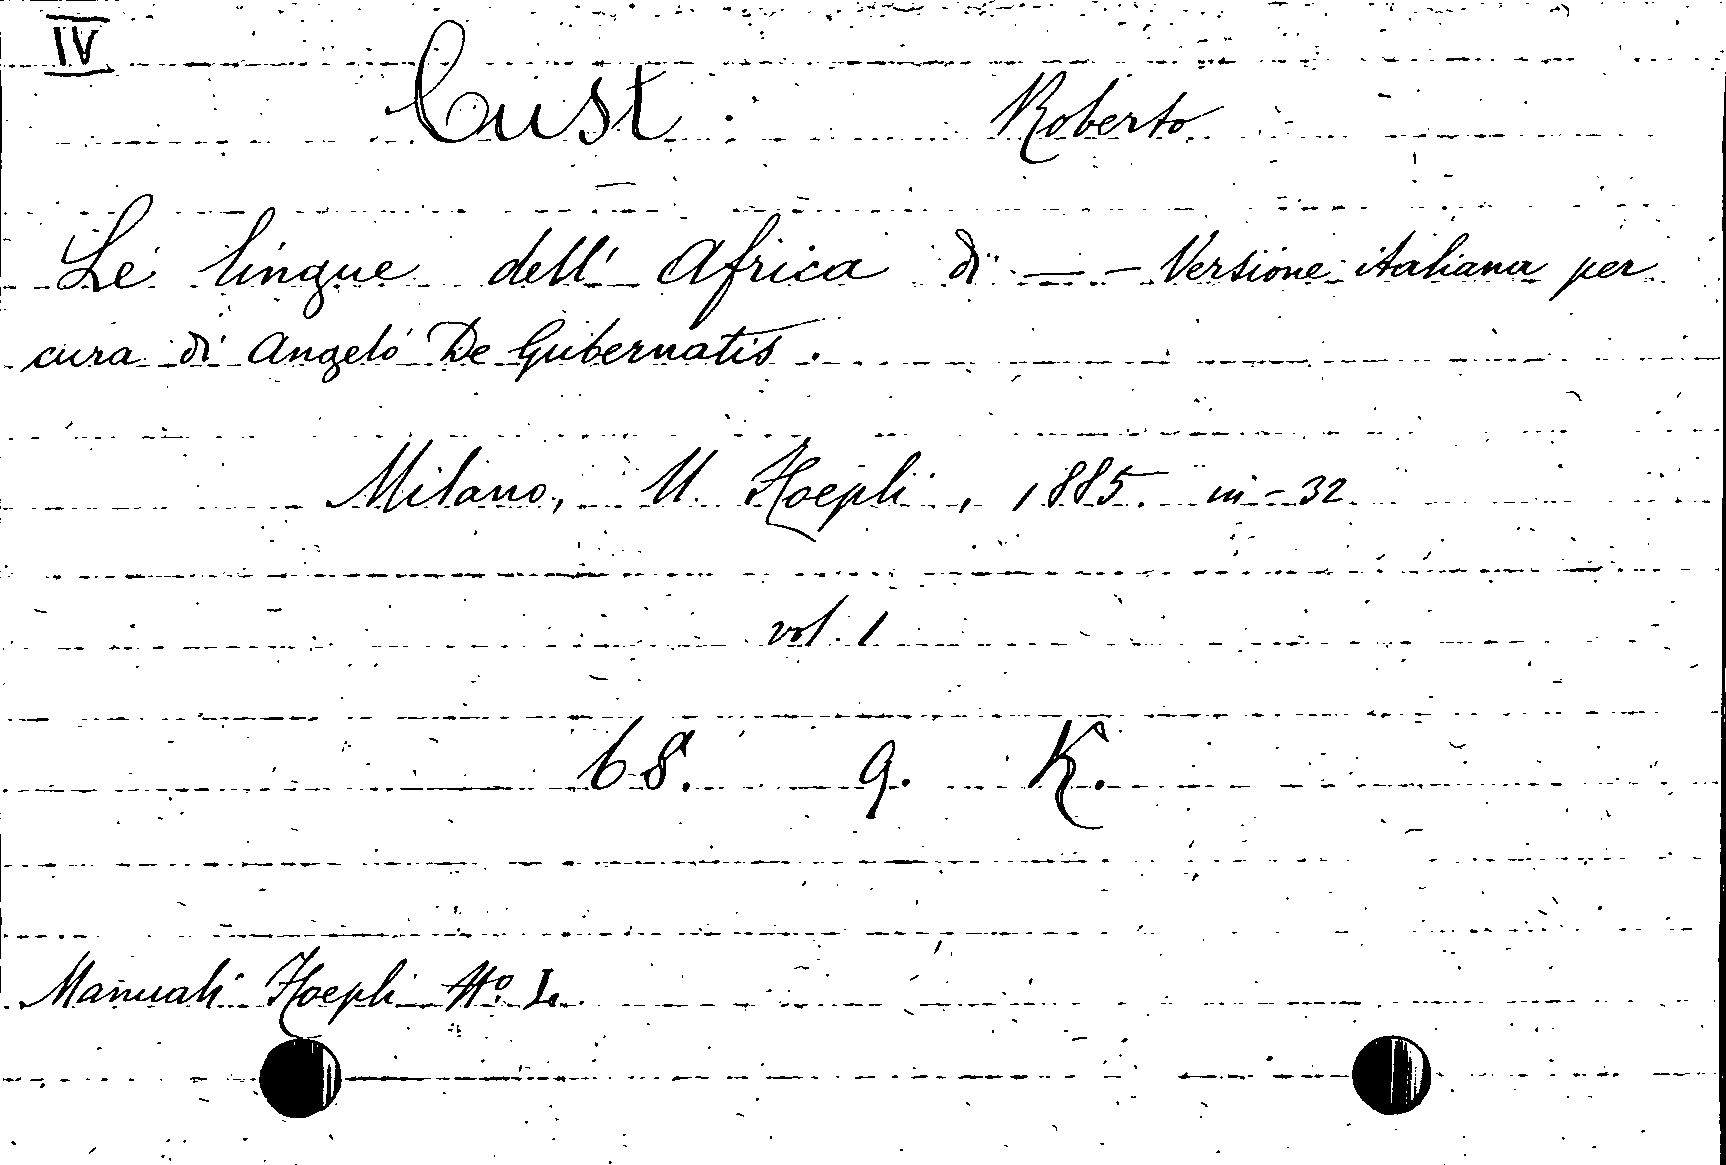 IV
Cust. Roberto
Le lingue dell' Africa di — — Versione italiana per
cura di Angelo De Gubernatis.
Milano, U. Hoepli, 1885. in-32
vol. 1
68. 9. K.
Manuali Hoepli No. L.